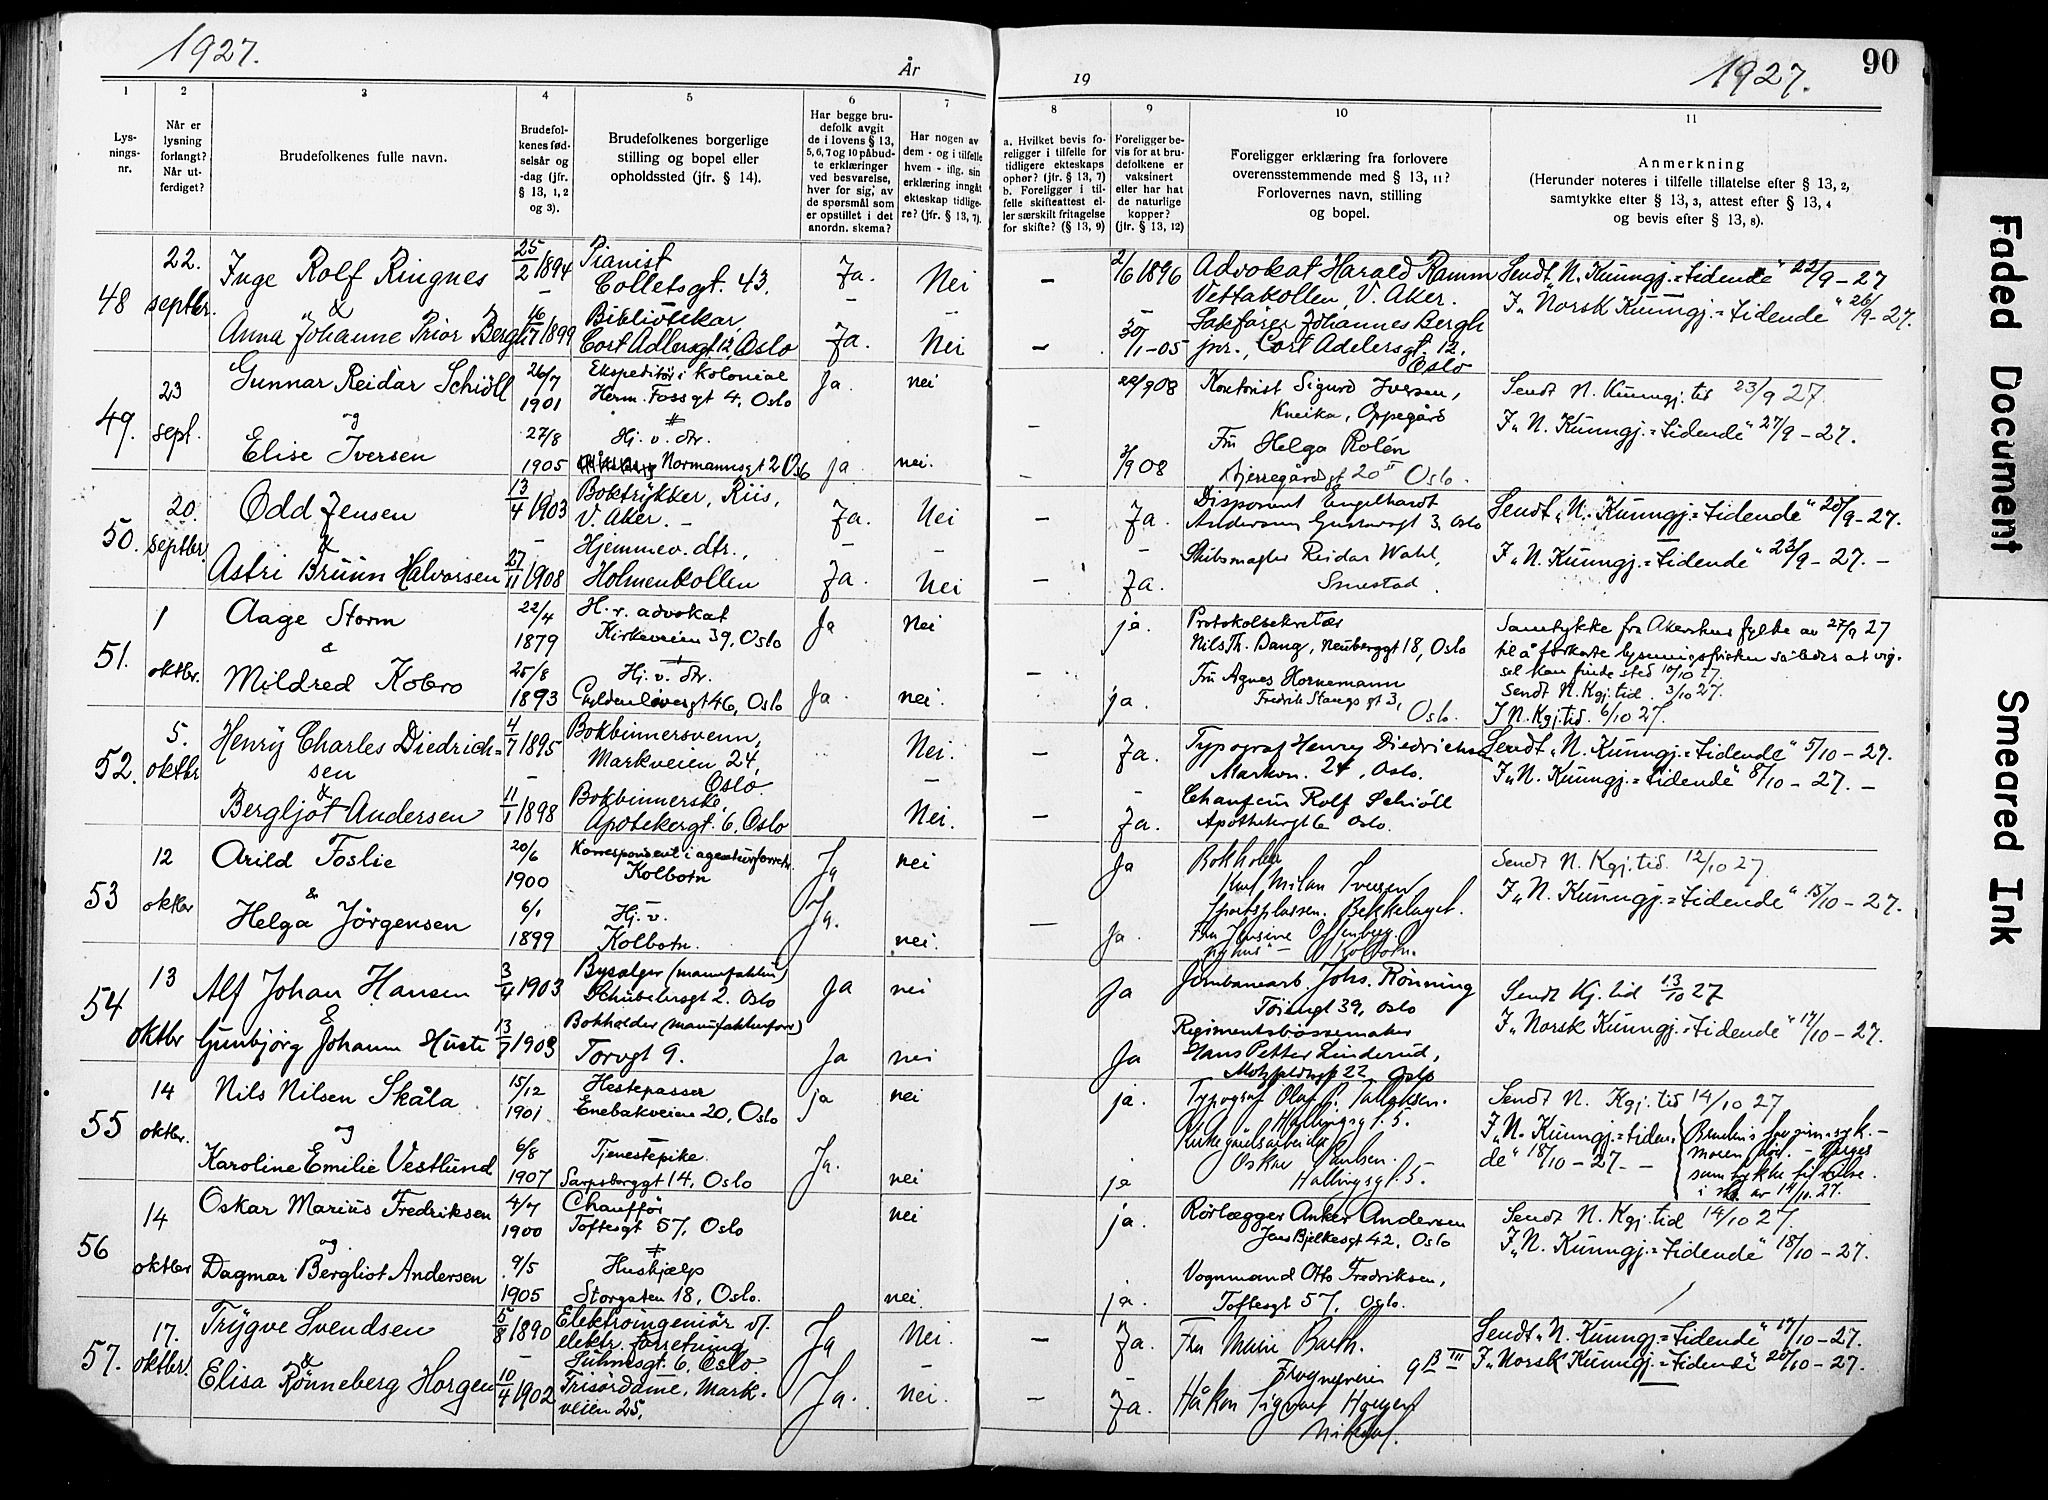 1927.
År
19
1927.
90
1
2
3
4
5
6
7
8
9
10
11
Lys-
nings-
nr.
Når er
lysning
forlangt?
Når ut-
ferdiget?
Brudefolkenes fulle navn.
Brudefol-
kenes fød-
selsår og
-dag (jfr.
§ 13, 1, 2
og 3).
Brudefolkenes borgerlige
stilling og bopel eller
opholdssted (jfr. § 14).
Har begge bru-
defolk avgit
de i lovens § 13,
5, 6, 7 og 10 påbud-
te erklæringer
ved besvarelse,
hver for sig, av
de spørsmål som
er opstillet i det
anordn. skema?
Har nogen av
dem - og i tilfelle
hvem - iflg. sin
erklæring inngåt
ekteskap tidlige-
re? (jfr. § 13, 7).
a. Hvilket bevis fo-
religger i tilfelle for
tidligere ekteskaps
ophør? (jfr. § 13, 7)
b. Foreligger i til-
felle skifteattest el-
ler særskilt fritagelse
for skifte? (§ 13, 9)
Foreligger be-
vis for at bru-
defolkene er
vaksinert
eller har hat
de naturlige
kopper?
(jfr. § 13, 12)
Foreligger erklæring fra forlovere
overensstemmende med § 13, 11?
Forlovernes navn, stilling
og bopel.
Anmerkning
(Herunder noteres i tilfelle tillatelse efter § 13, 2,
samtykke efter § 13, 3, attest efter § 13, 4
og bevis efter § 13, 8).
48
22.
septbr.
Inge Rolf Ringnes
&
Anna Johanne Prior Bergh
25/2 1894
–
16/7 1899
Pianist
Colletsgt. 43.
Bibliotekar,
Cort Adlersgt. 12, Oslo
Ja.
–
Ja.
Nei
–
Nei
–
–
2/6 1896
–
30/1-05
Advokat Harald Ramm
Vettakollen, V. Aker.
Sakfører Johannes Bergh
jnr., Cort Adelersgt. 12.
Oslo
Sendt „N. Kunngj.=tidende" 22/9 – 27
I „Norsk Kunngj.=tidende" 26/9 – 27.
49.
23
sept.
Gunnar Reidar Schiøll
og
Elise Iversen
26/7
1901
27/8
1905
Ekspeditør i kolonial
Herm. Fossgt 4, Oslo
Hj. v. dtr.
Normannsgt 2 Oslo
Ja.
ja
nei
nei.
–
–
22/9 08
3/9 08
Kontorist Sigurd Iversen,
Kneika, Oppegård
Fru Helga Rolén
Bjerregårdsgt 20 II Oslo.
Sendt N. Kunngj. tid 23/9 27.
I „N. Kunngj.=tidende" 27/9 – 27.
50.
20.
septbr.
Odd Jensen
&
Astri Bruun Halvorsen
13/4 1903
–
27/11 1908
Boktrykker, Riis,
V. Aker. –
Hjemmev. dtr.,
Holmenkollen
Ja.
–
Ja.
Nei
–
Nei
–
–
Ja.
–
Ja.
Disponent Engelhardt
Andersen, Gustavsgt 3, Oslo
Skibsmægler Reidar Wahl,
Smestad.
Sendt „N. Kunngj.=tidende" 20/9 – 27.
I „N. Kunngj.=tidende" 23/9 – 27. –
51.
1
oktbr.
Aage Storm
&
Mildred Kobro
22/4
1879
25/8
1893
H.r. advokat
Kirkeveien 39, Oslo
Hj. v. dtr.
Gyldenløvesgt 46, Oslo
Ja
Ja.
Nei
nei.
–
ja.
ja.
Protokolsekretær
Nils Th. Dang, Neuberggt 18, Oslo
Fru Agnes Hornemann
Fredrik Stangs gt 3,
Oslo.
Samtykke fra Akershus fylke av 27/9 27
til å forkorte lysningsfristen således at vig-
sel kan finde sted 10/10 27.
Sendt N. Kgj. tid. 3/10 27.
I N. Kgj. tid. 6/10 27.
52.
5.
oktbr
Henry Charles Diedrich=
sen
&
Bergljot Andersen
4/7 1895
–
11/1 1898
Bokbindersvenn,
Markveien 24,
Oslo.
Bokbinnerske,
Apotekergt. 6, Oslo
Nei.
–
Nei.
–
–
Ja.
–
Ja.
Typograf Henry Diedrichsen
Markvn. 24, Oslo.
Chauffeur Rolf Schiøll
Apothekergt 6 Oslo.
Sendt „N. Kunngj.=tidende" 5/10 – 27.
I „N. Kunngj.=tidende" 8/10 – 27. –
53
12
oktbr
Arild Foslie
&
Helga Jörgensen
20/6
1900
6/1
1899
Korrespondent i agenturforretn.
Kolbotn
Hj. v.
Kolbotn.
Ja
Ja.
nei
nei.
–
Ja
Ja.
Bokholder
Karl Milan Iversen
Sportsplassen. Bekkelaget.
Fru Jensine Offenberg
Kolbotn.
Sendt N. Kgj. tid. 12/10 27.
I „N. Kunngj.=tidende" 15/10 – 27.
54
13
oktbr
Alf Johan Hansen
&
Gunbjörg Johanne Huste
3/4 1903
13/7 1903
Bysælger (manufaktur)
Schübelersgt 2. Oslo
Bokholder (manufakturforr)
Torvgt 9.
Ja
Ja
nei
nei
Ja
Ja
Jernbanearb. Johs. Rönning
Töiengt 39, Oslo
Regimentsbössemaker
Hans Petter Linderud,
Motzfeldtsgt 22 Oslo
Sendt Kj. tid 13/10 27
I „Norsk Kunngj.=tidende" 17/10 – 27.
55
14
oktbr.
Nils Nilsen Skåla
og
Karoline Emilie Vestlund
15/12
1901.
6/8
1907
Hestepasser
Enebakveien 20, Oslo
Tjenestepike.
Sarpsborggt 14, Oslo
ja
Ja.
nei
nei
ja.
ja
Typograf Olaf P.
Hallingsgt. 5.
Kirkegårdsarbeider
Oskar Paulsen.
Hallingsgt. 5.
Sendt N. Kgj. tid 14/10 27
I „N. Kunngj.=tiden-
de" 18/10 – 27. –
Brudens far sinnssyk. –
moren död. – Verges
samtykke til
i av 14/10. 27.
56
14
oktbr
Oskar Marius Fredriksen
og
Dagmar Bergliot Andersen
4/7
1900
9/5
1905
Chaufför
Toftesgt 57, Oslo
Hushjælp
Storgaten 18, Oslo.
nei
nei.
ja.
ja.
Rörlægger Anker Andersen
Jens Bjelkesgt 42, Oslo
Vognmand Otto Fredriksen,
Toftesgt 57, Oslo.
Sendt N. Kgj. tid 14/10 27.
I „N. Kunngj.=tidende" 18/10 – 27.
57.
17.
oktbr.
Trygve Svendsen
&
Elisa Rönneberg Horgen
5/8 1890
–
10/4 1902
Elektroingeniör v/
elektr. forretning
Suhmsgt. 6, Oslo
Frisördame, Mark-
veien 25,
Ja
Ja.
Nei.
–
Nei.
–
–
Ja.
–
Ja.
Fru Marie Barth.
Frognerveien 9 B III
Håkon Sigvart Horgen
Sendt „N. Kunngj.=tidende" 17/10 – 27.
I „Norsk Kunngj.=tidende" 20/10 – 27.
Faded Document
Smeared Ink